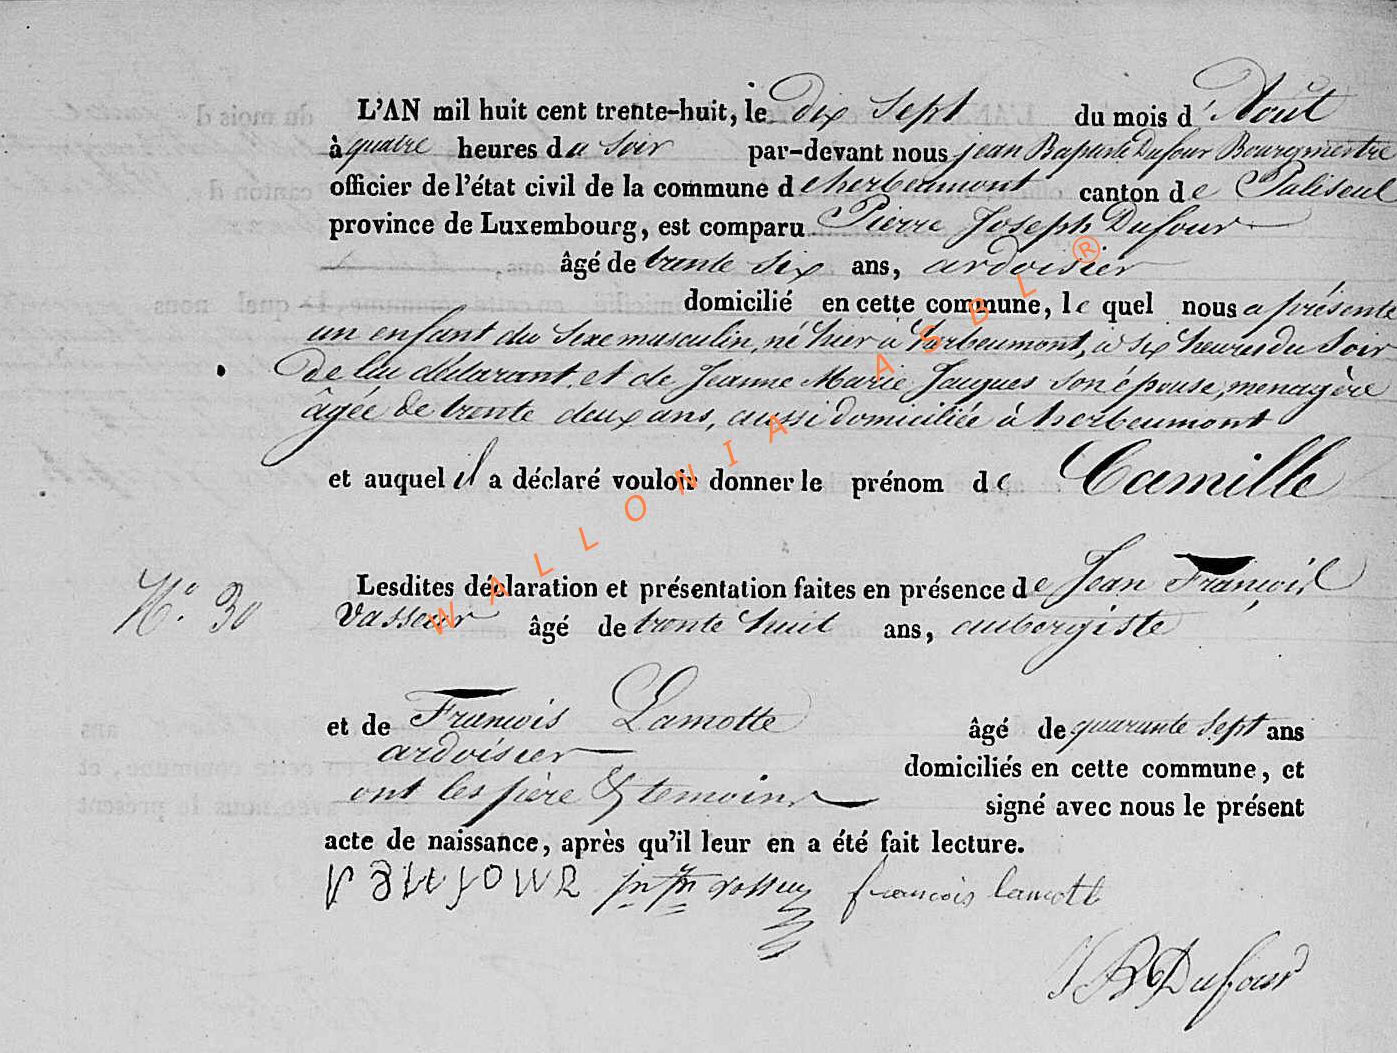 L'AN mil huit cent trente-huit, le dix sept du mois d' Aout
à quatre heures du soir par-devant nous jean Baptiste Dufour Bourgmestre
officier de l'état civil de la commune d'herbeumont canton de Paliseul
province de Luxembourg, est comparu Pierre Joseph Dufour
âgé de trente six ans, ardoisier
domicilié en cette commune, le quel nous a présenté
un enfant du sexe masculin, né hier à herbeumont, à six heures du soir
de lui déclarant, et de Jeanne Marie Jaques son épouse, menagère
âgée de trente deux ans, aussi domiciliée à herbeumont
et auquel il a déclaré vouloir donner le prénom de Camille
Lesdites déclaration et présentation faites en présence de Jean François
N.° 30 Vasseur âgé de trente huit ans, aubergiste
et de François Lamotte âgé de quarante sept ans
ardoisier domiciliés en cette commune, et
ont les père & temoins signé avec nous le présent
acte de naissance, après qu'il leur en a été fait lecture.
francois lamotte
J B Dufour
WALLONIA ASBL ®